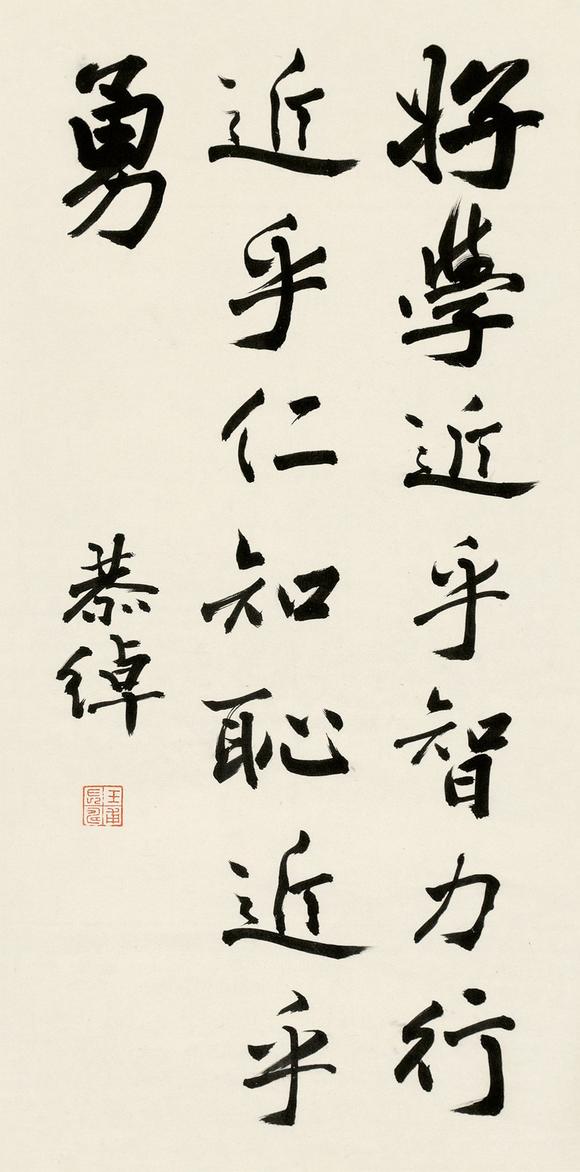 好學近乎智力行
近乎仁知恥近乎
勇
恭綽